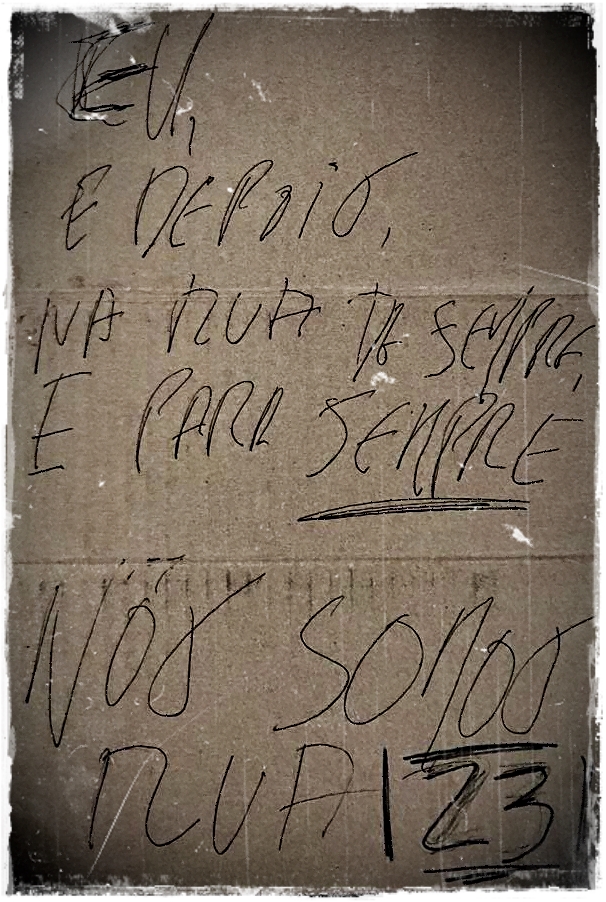 EU,
E DEPOIS,
NA RUA DE SEMPRE,
E PARA SEMPRE
NÓS SOMOS
RUA 123